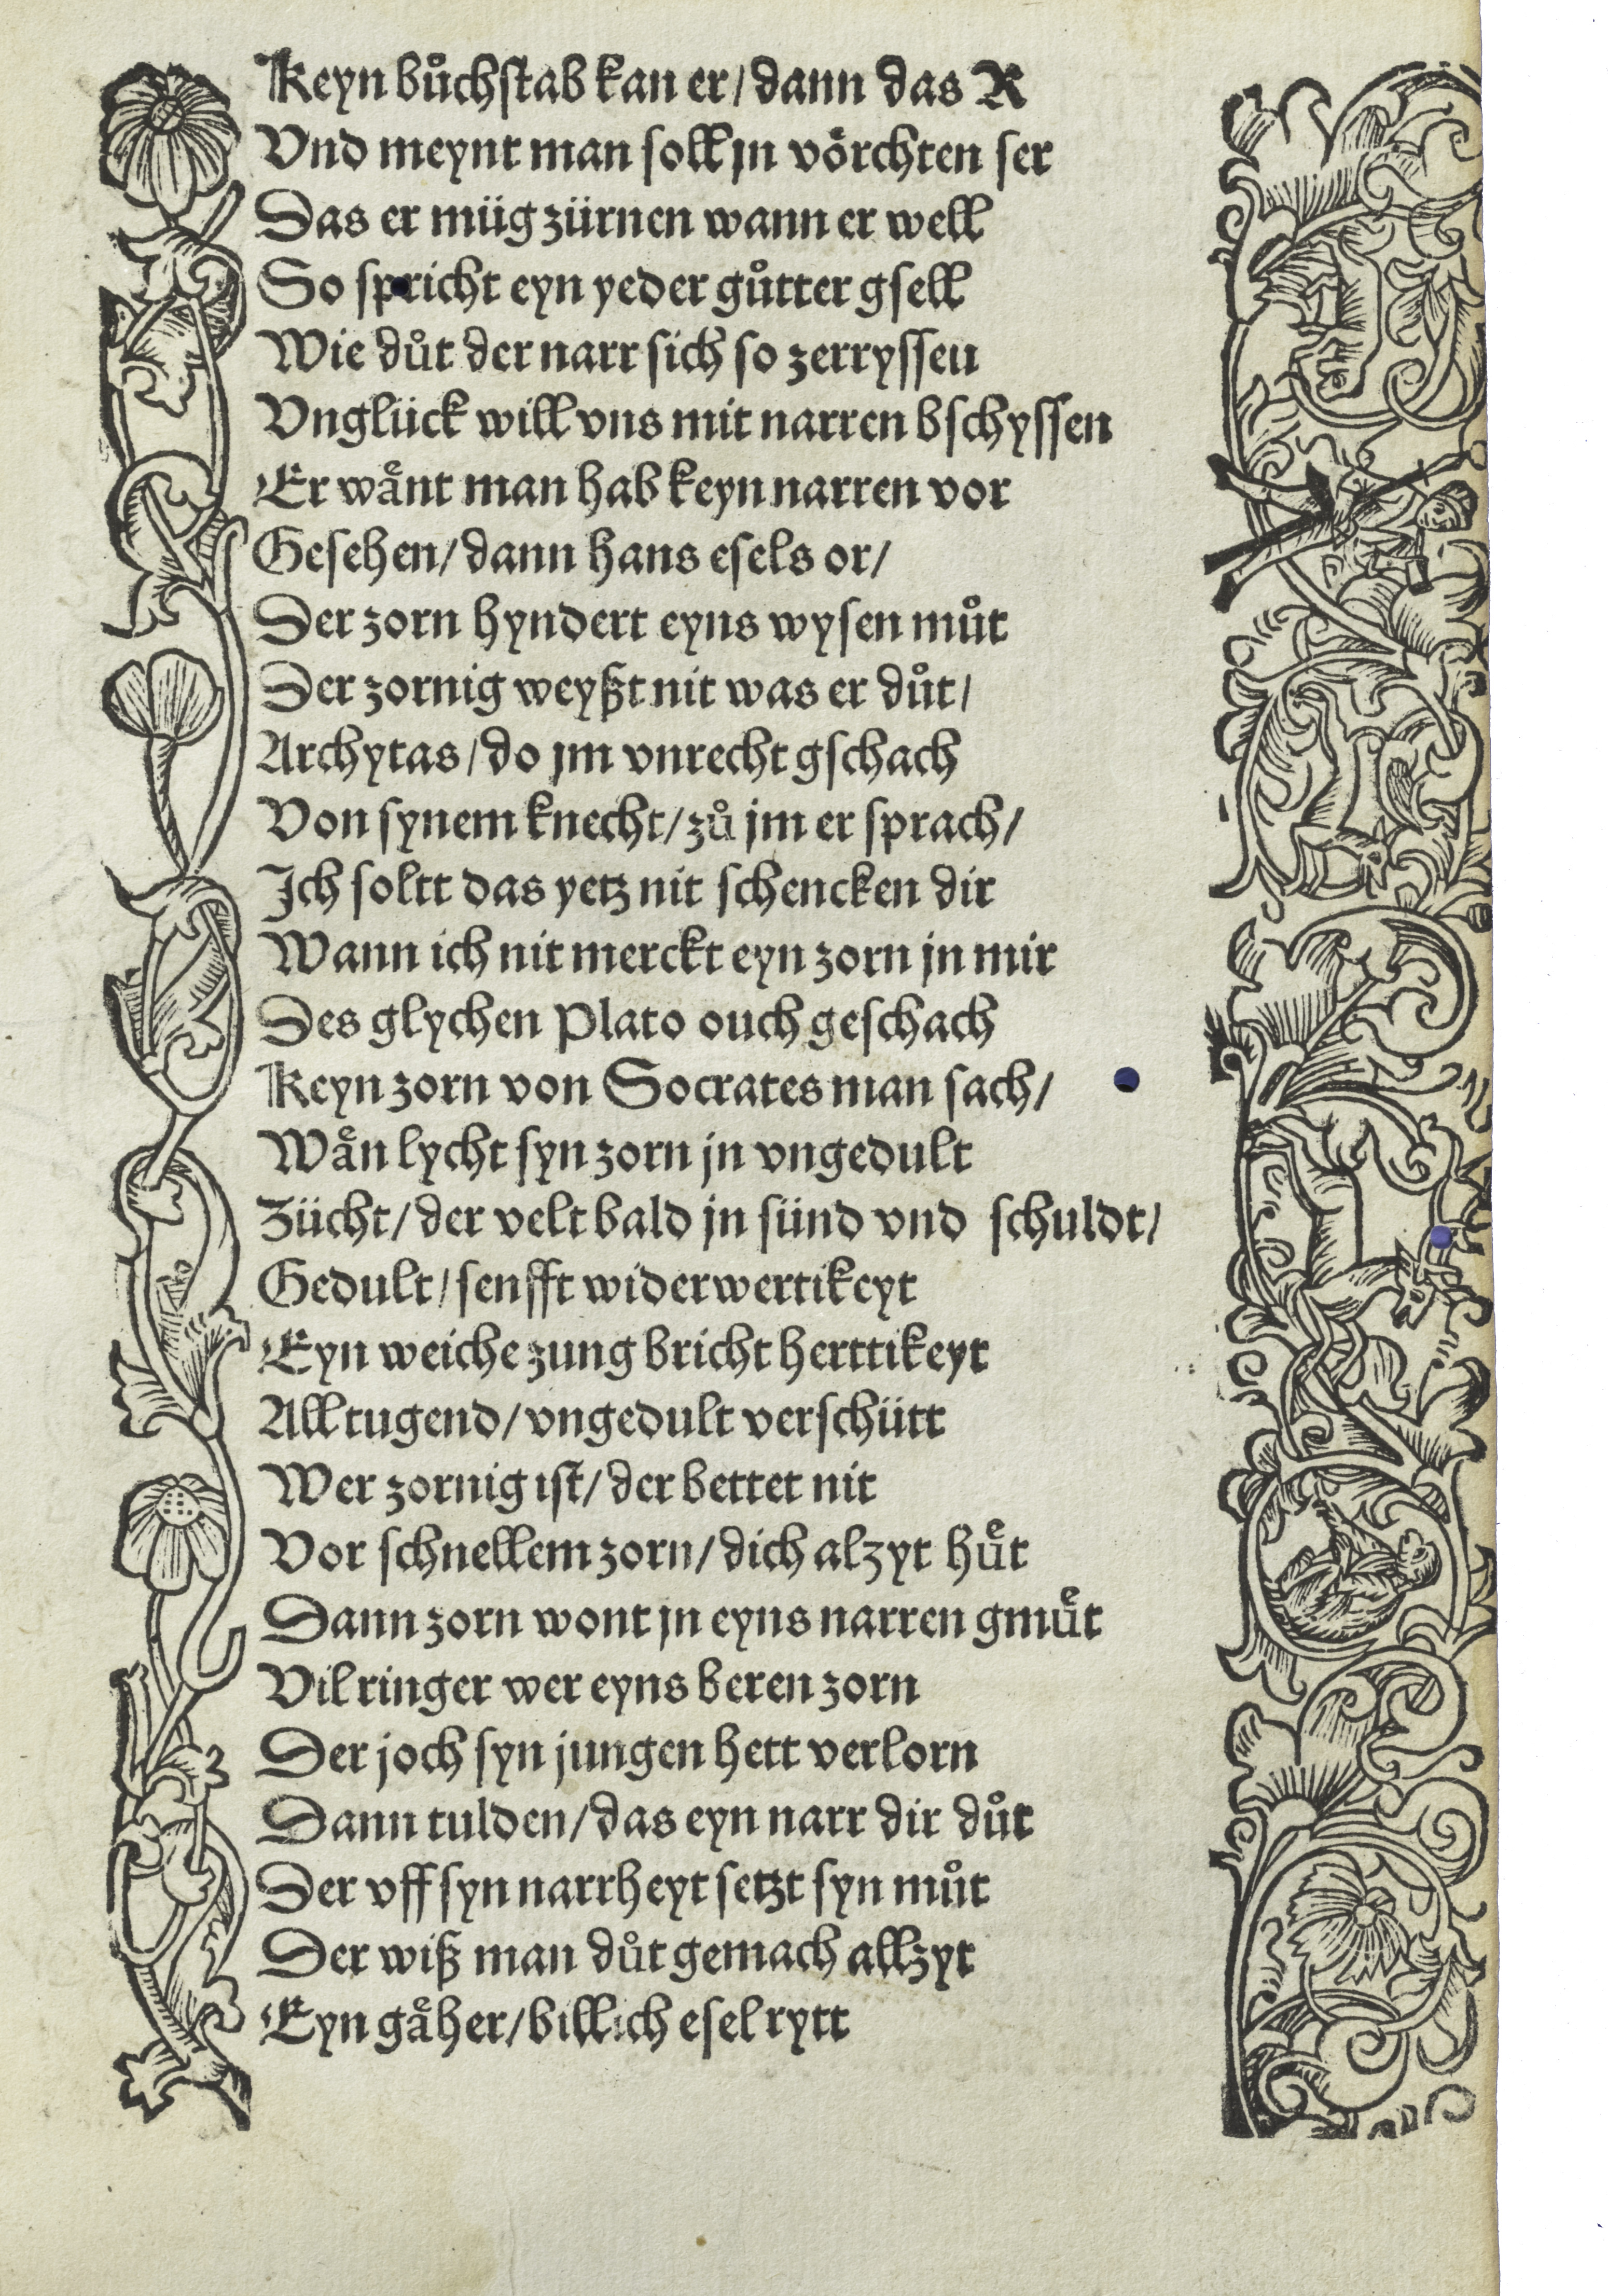 Keyn bůchstab kan er/ dann das R
Vnd meynt man soll jn voͤrchten ser
Das er müg zürnen wann er well
So spricht eyn yeder gůtter gsell
Wie důt der narr sich so zerryssen
Vnglück will vns mit narren bschyssen
Er waͤnt man hab keyn narren vor
Gesehen/ dann hans esels or/
Der zorn hyndert eyns wysen můt
Der zornig weyßt nit was er důt/
Archytas/ do jm vnrecht gschach
Von synem knecht/ zů jm er sprach/
Ich soltt das yetz nit schencken dir
Wann ich nit merckt eyn zorn jn mir
Des glychen Plato ouch geschach
Keyn zorn von Socrates man sach/
Waͤn lycht syn zorn jn vngedult
Zücht/ der velt bald jn sünd vnd schuldt/
Gedult/ senfft widerwertikeyt
Eyn weiche zung bricht herttikeyt
All tugend/ vngedult verschütt
Wer zornig ist/ der bettet nit
Vor schnellem zorn/ dich alzyt huͤt
Dann zorn wont jn eyns narren gmuͤt
Vil ringer wer eyns beren zorn
Der joch syn jungen hett verlorn
Dann tulden/ das eyn narr dir důt
Der vff syn narrheyt setzt syn můt
Der wiß man důt gemach allzyt
Eyn gaͤher/ billich esel rytt